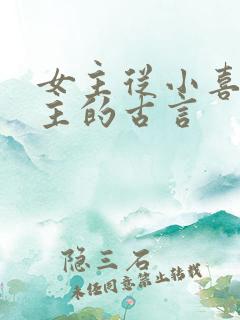 女主从小喜
主的古言
隐三石
未经同意禁止转载